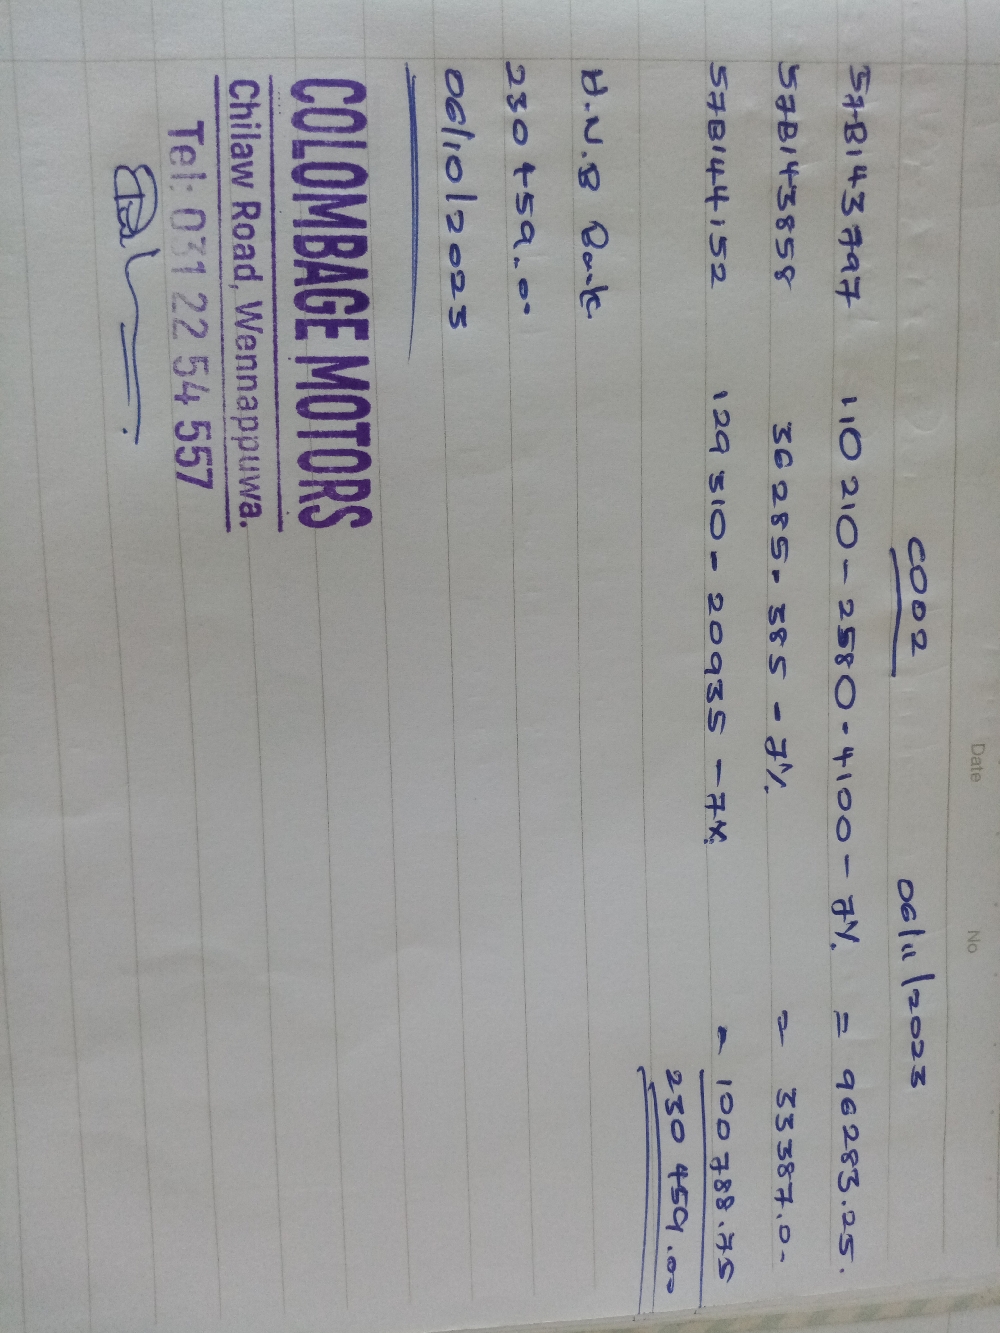 Date No
C002 06/11/2023
57B143797 110210-2580-4100-7% = 96283.25.
57B143858 36285-385-7% = 33387.0-
57B144152 129310-20935-7% = 100788.75
230459.00
H.N.B Bank
230459.00
06/10/2023
COLOMBAGE MOTORS
Chilaw Road, Wennappuwa.
Tel: 031 22 54 557